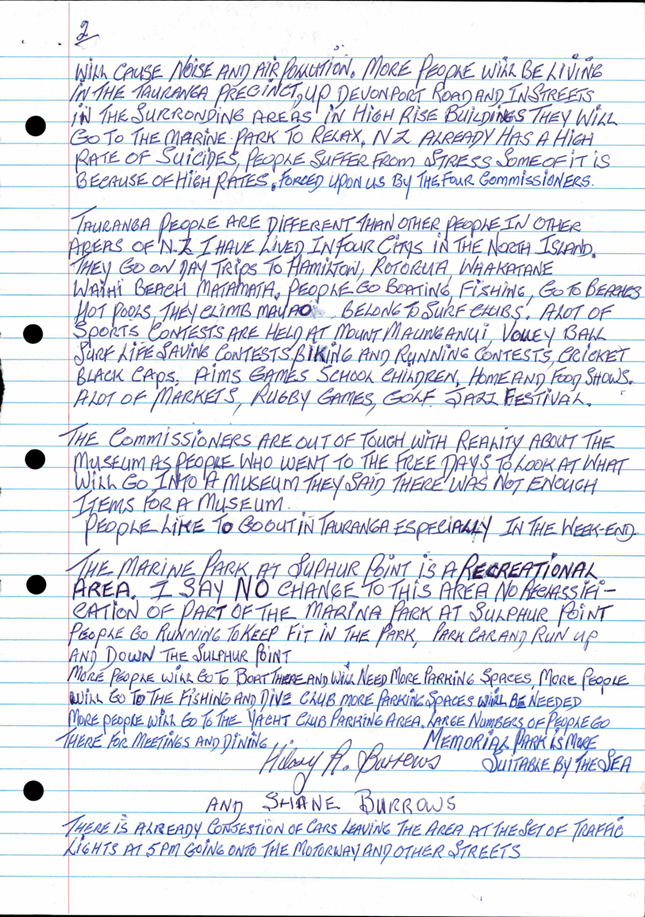 2
WILL CAUSE NOISE AND AIR POLLUTION. MORE PEOPLE WILL BE LIVING
IN THE TAURANGA PRECINCT, UP DEVONPORT ROAD AND IN STREETS
IN THE SURRONDING AREAS IN HIGH RISE BUILDINGS THEY WILL
GO TO THE MARINE PARK TO RELAX. NZ ALREADY HAS A HIGH
RATE OF SUICIDES, PEOPLE SUFFER FROM STRESS SOME OF IT IS
BECAUSE OF HIGH RATES. FORCED UPON US BY THE FOUR COMMISSIONERS.
TAURANGA PEOPLE ARE DIFFERENT THAN OTHER PEOPLE IN OTHER
AREAS OF N.Z I HAVE LIVED IN FOUR CITYS IN THE NORTH ISLAND.
THEY GO ON DAY TRIPS TO HAMILTON, ROTORUA, WHAKATANE
WAIHI BEACH MATAMATA. PEOPLE GO BOATING, FISHING, GO TO BEACHES
HOT POOLS, THEY CLIMB MAUAO. BELONG TO SURF CLUBS. ALOT OF
SPORTS CONTESTS ARE HELD AT MOUNT MAUNGANUI, VOLLEY BALL
SURF LIFE SAVING CONTESTS, BIKING AND RUNNING CONTESTS, CRICKET
BLACK CAPS. AIMS GAMES SCHOOL CHILDREN. HOME AND FOOD SHOWS.
ALOT OF MARKETS, RUGBY GAMES, GOLF. JAZZ FESTIVAL.
THE COMMISSIONERS ARE OUT OF TOUCH WITH REALITY ABOUT THE
MUSEUM AS PEOPLE WHO WENT TO THE FREE DAYS TO LOOK AT WHAT
WILL GO INTO A MUSEUM THEY SAID THERE WAS NOT ENOUGH
ITEMS FOR A MUSEUM.
PEOPLE LIKE TO GO OUT IN TAURANGA ESPECIALLY IN THE WEEK-END.
THE MARINE PARK AT SUPHUR POINT IS A RECREATIONAL
AREA. I SAY NO CHANGE TO THIS AREA NO RECLASSIFI-
CATION OF PART OF THE MARINA PARK AT SULPHUR POINT
PEOPLE GO RUNNING TO KEEP FIT IN THE PARK, PARK CAR AND RUN UP
AND DOWN THE SULPHUR POINT
MORE PEOPLE WILL GO TO BOAT THERE AND WILL NEED MORE PARKING SPACES, MORE PEOPLE
WILL GO TO THE FISHING AND DIVE CLUB MORE PARKING SPACES WILL BE NEEDED
MORE PEOPLE WILL GO TO THE YACHT CLUB PARKING AREA. LARGE NUMBERS OF PEOPLE GO
THERE FOR MEETINGS AND DINING. MEMORIAL PARK IS MORE
Hilary A. Burrows SUITABLE BY THE SEA
AND SHANE BURROWS
THERE IS ALREADY CONJESTION OF CARS LEAVING THE AREA AT THE SET OF TRAFFIC
LIGHTS AT 5PM GOING ONTO THE MOTORWAY AND OTHER STREETS